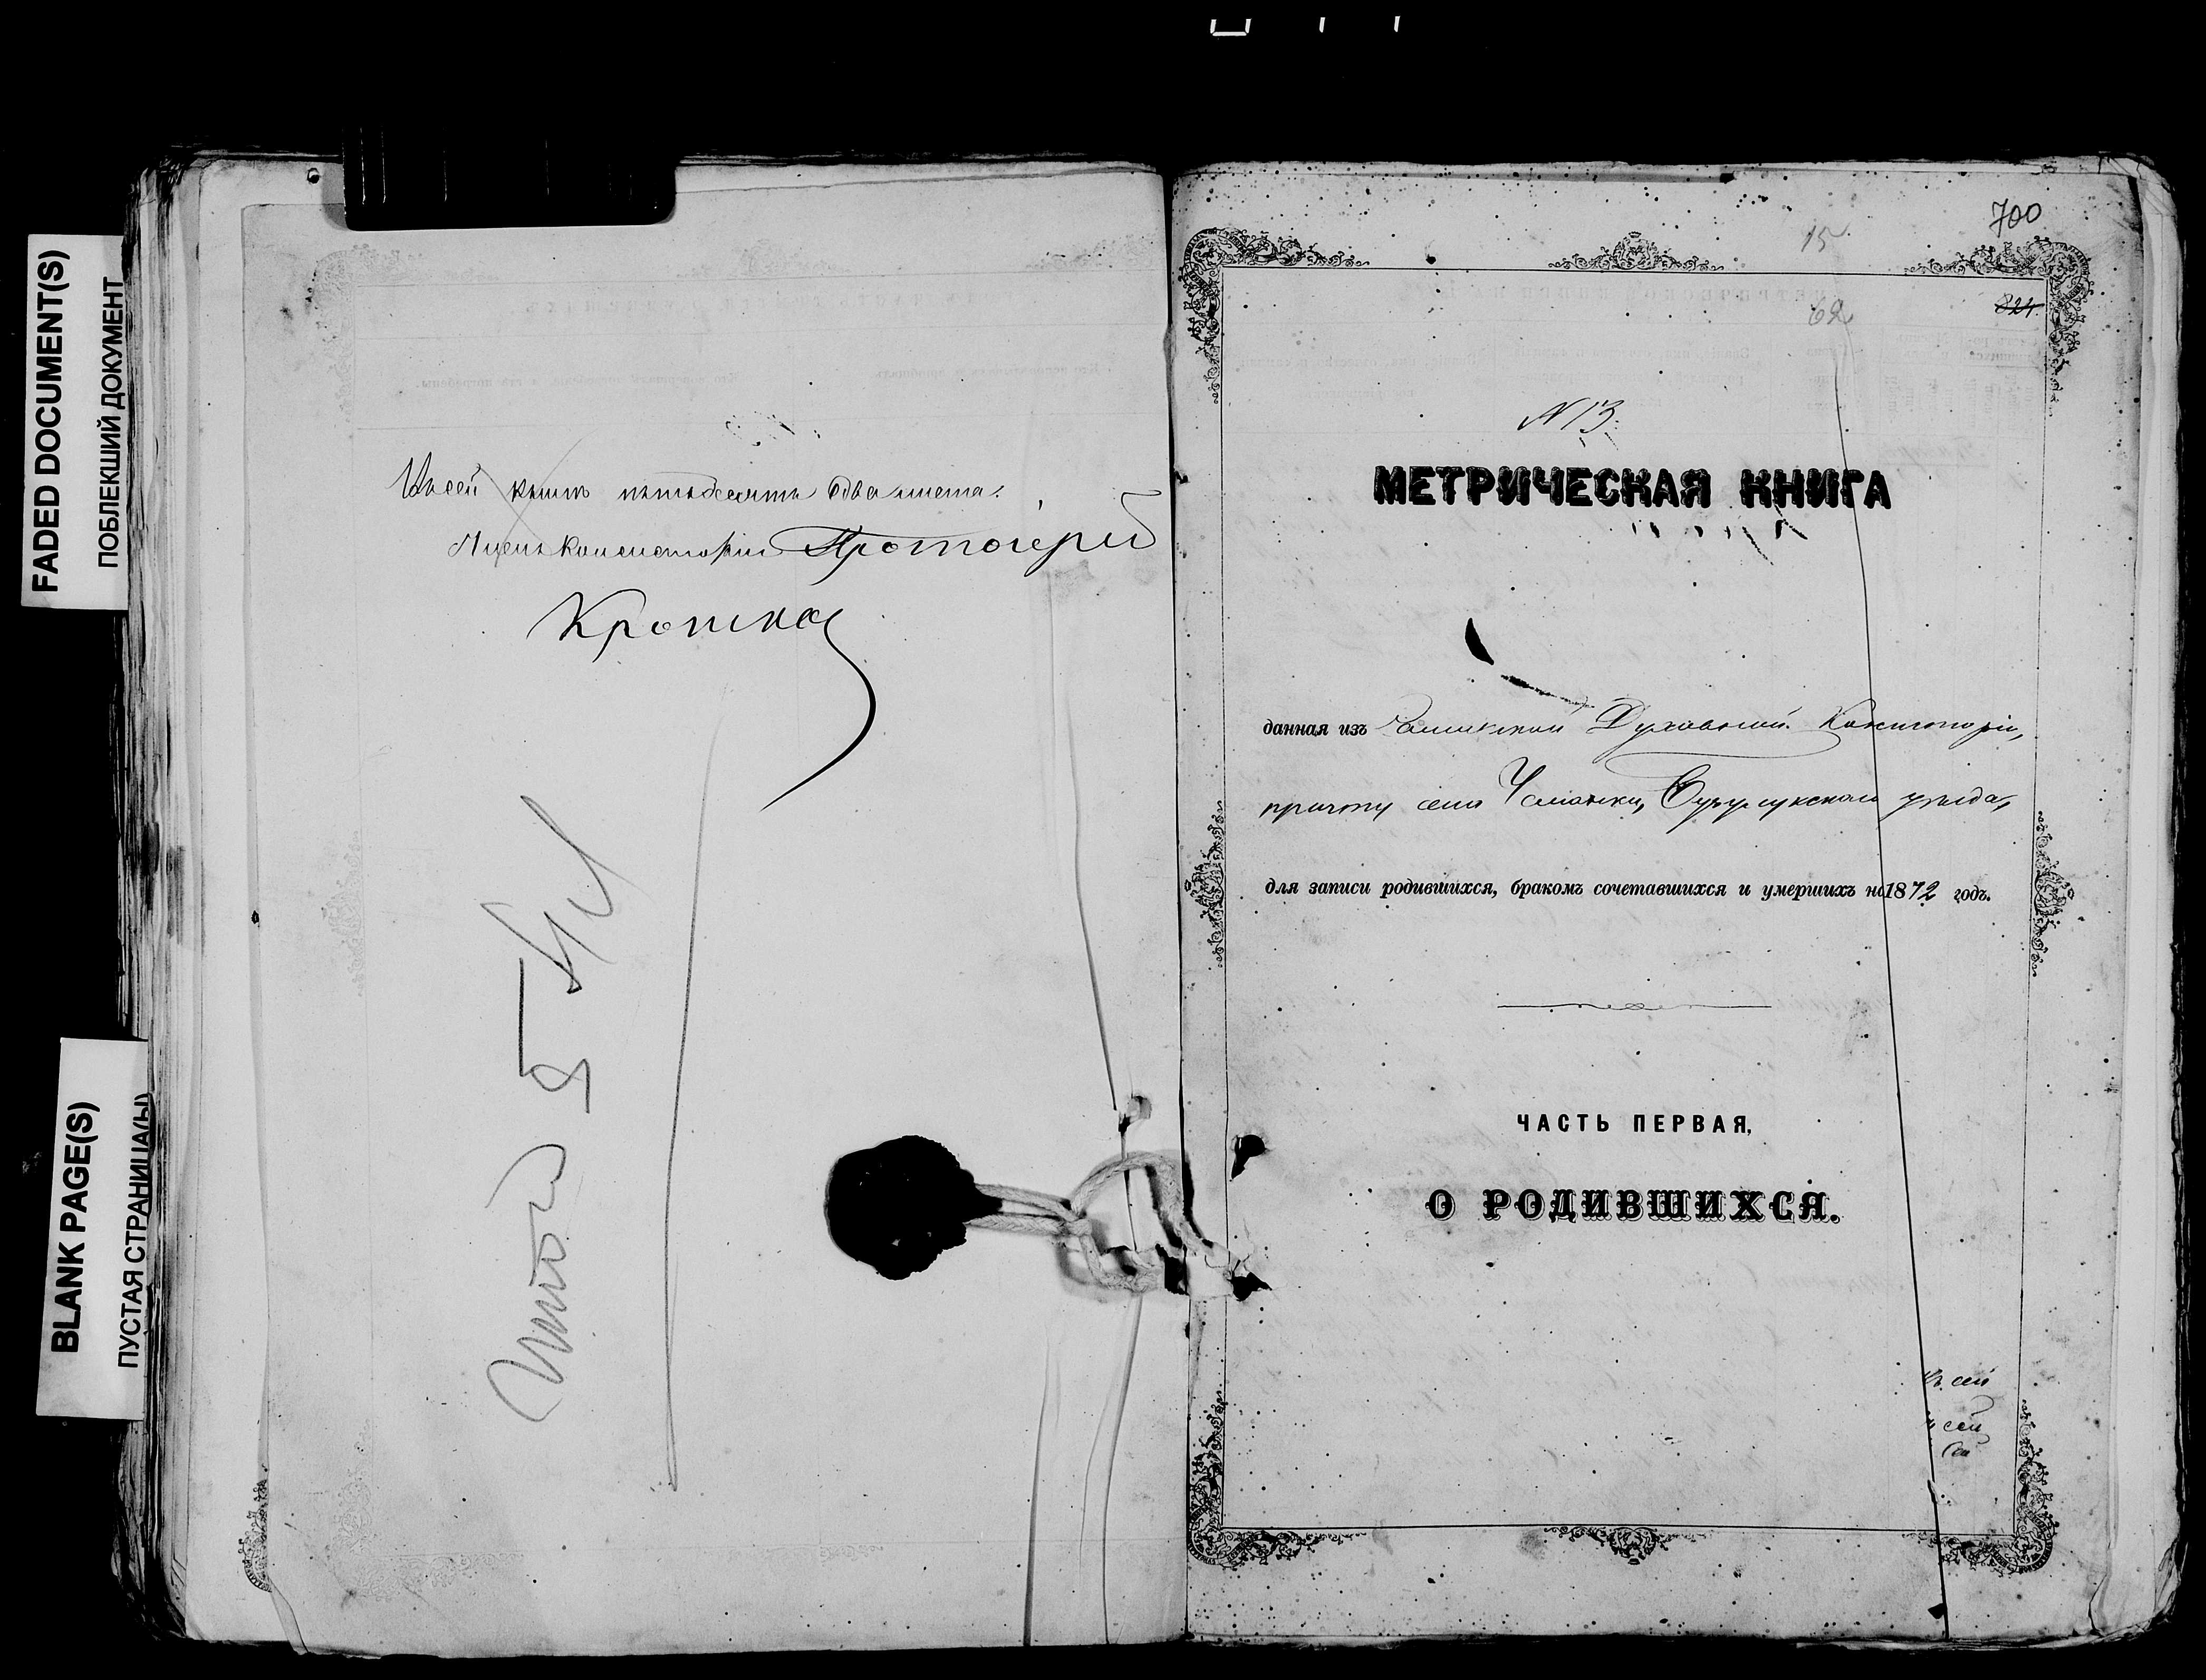 FADED DOCUMENT(S)
ПОБЛЕКШИЙ ДОКУМЕНТ
BLANK PAGE(S)
ПУСТАЯ СТРАНИЦА(Ы)
Въ сей книгѣ пятьдесятъ два листа.
Членъ Консисторіи Протоіерей
Итого 52
700
15
62
824.
N 13.
МЕТРИЧЕСКАЯ КНИГА
данная изъ Самарской Духовной Консисторіи,
причту села Бузулукскаго уѣзда,
для записи родившихся, бракомъ сочетавшихся и умершихъ на 1872 годъ.
ЧАСТЬ ПЕРВАЯ,
О РОДИВШИХСЯ.
сей
сей